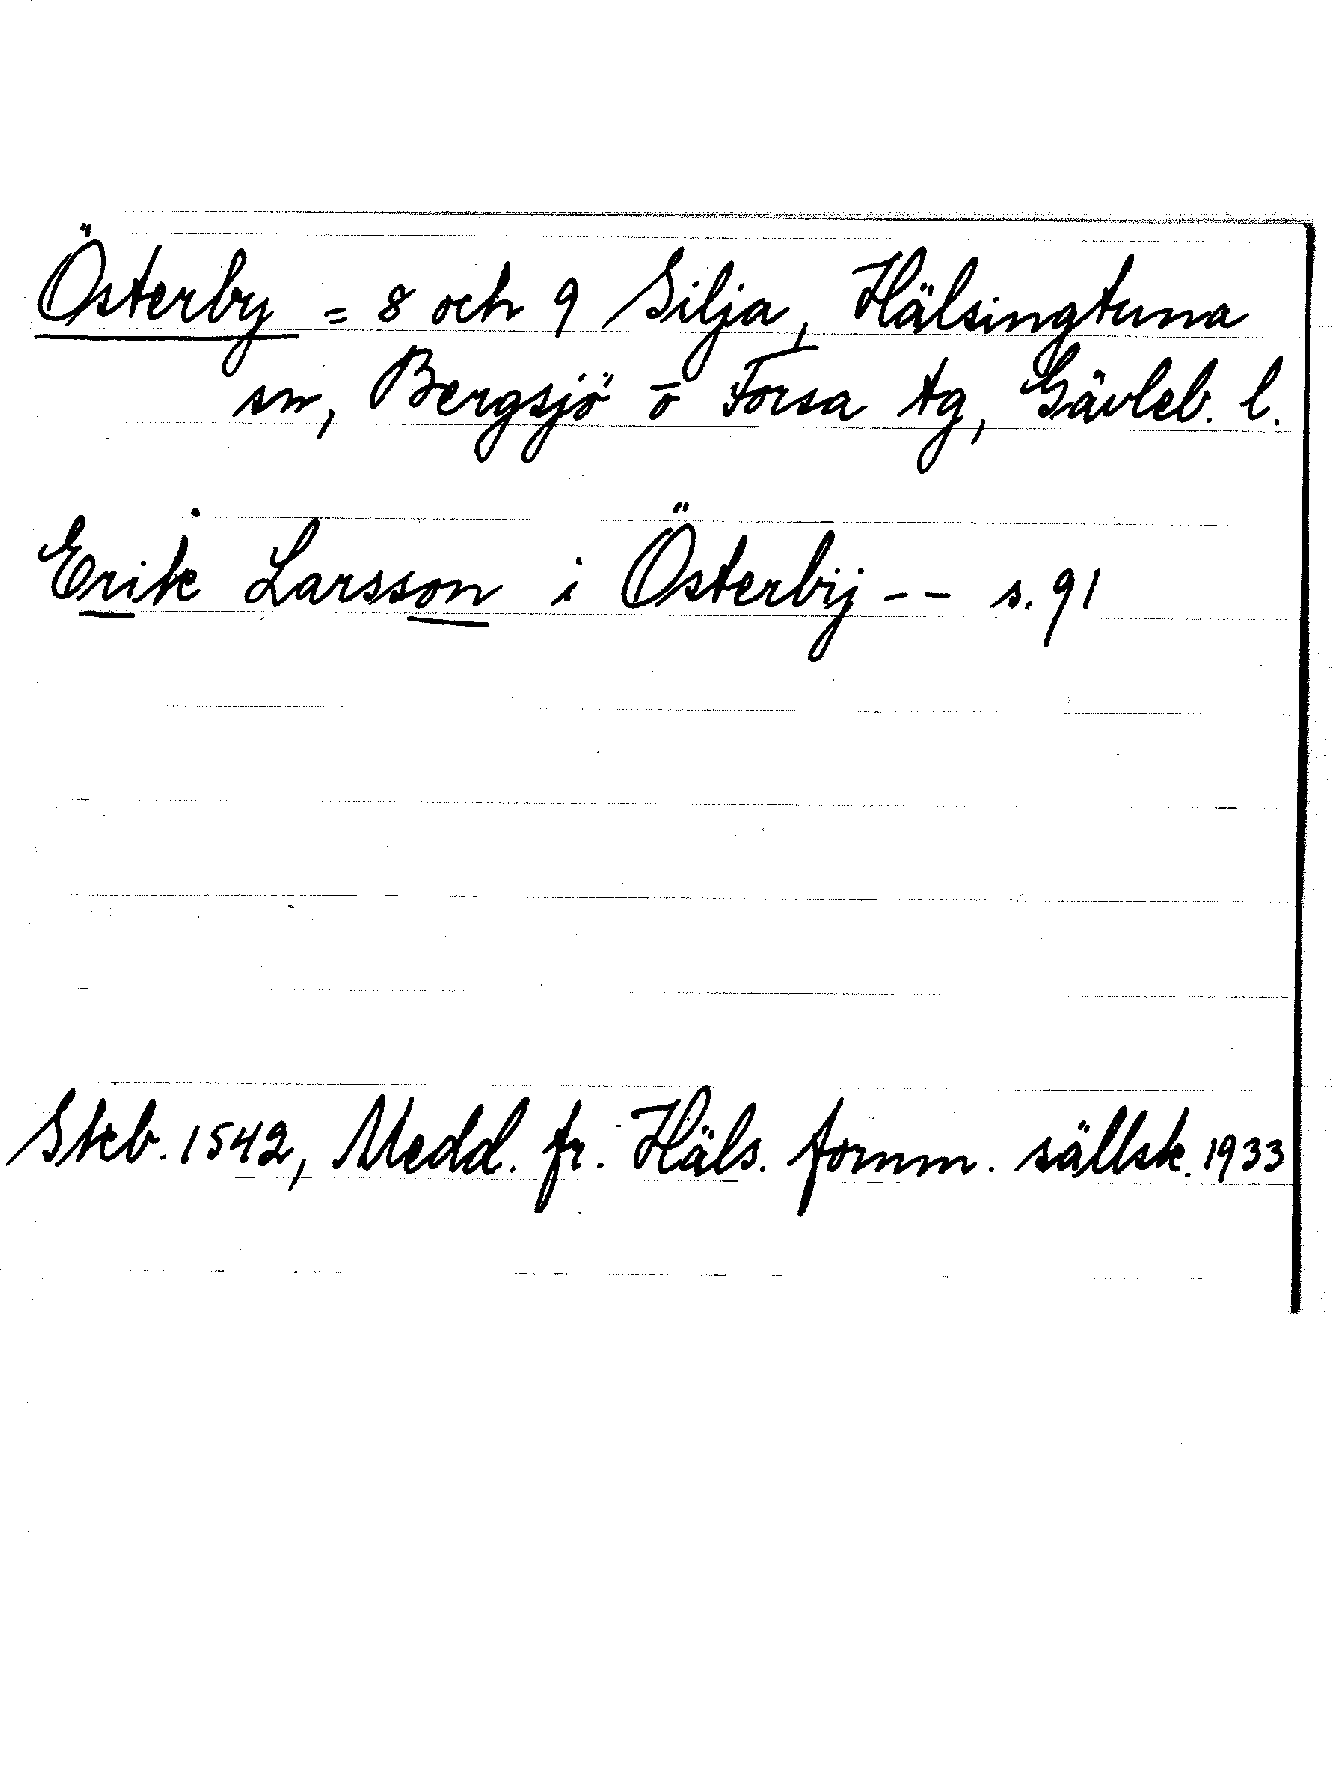 Österby = 8 och 9 Silja, Hälsingtuna
sn, Bergsjö o Forsa tg, Gävleb. l.
Erik Larsson i Österbÿ -- s. 91
Skb. 1542, Medd. fr. Häls. fornm. sällsk. 1933